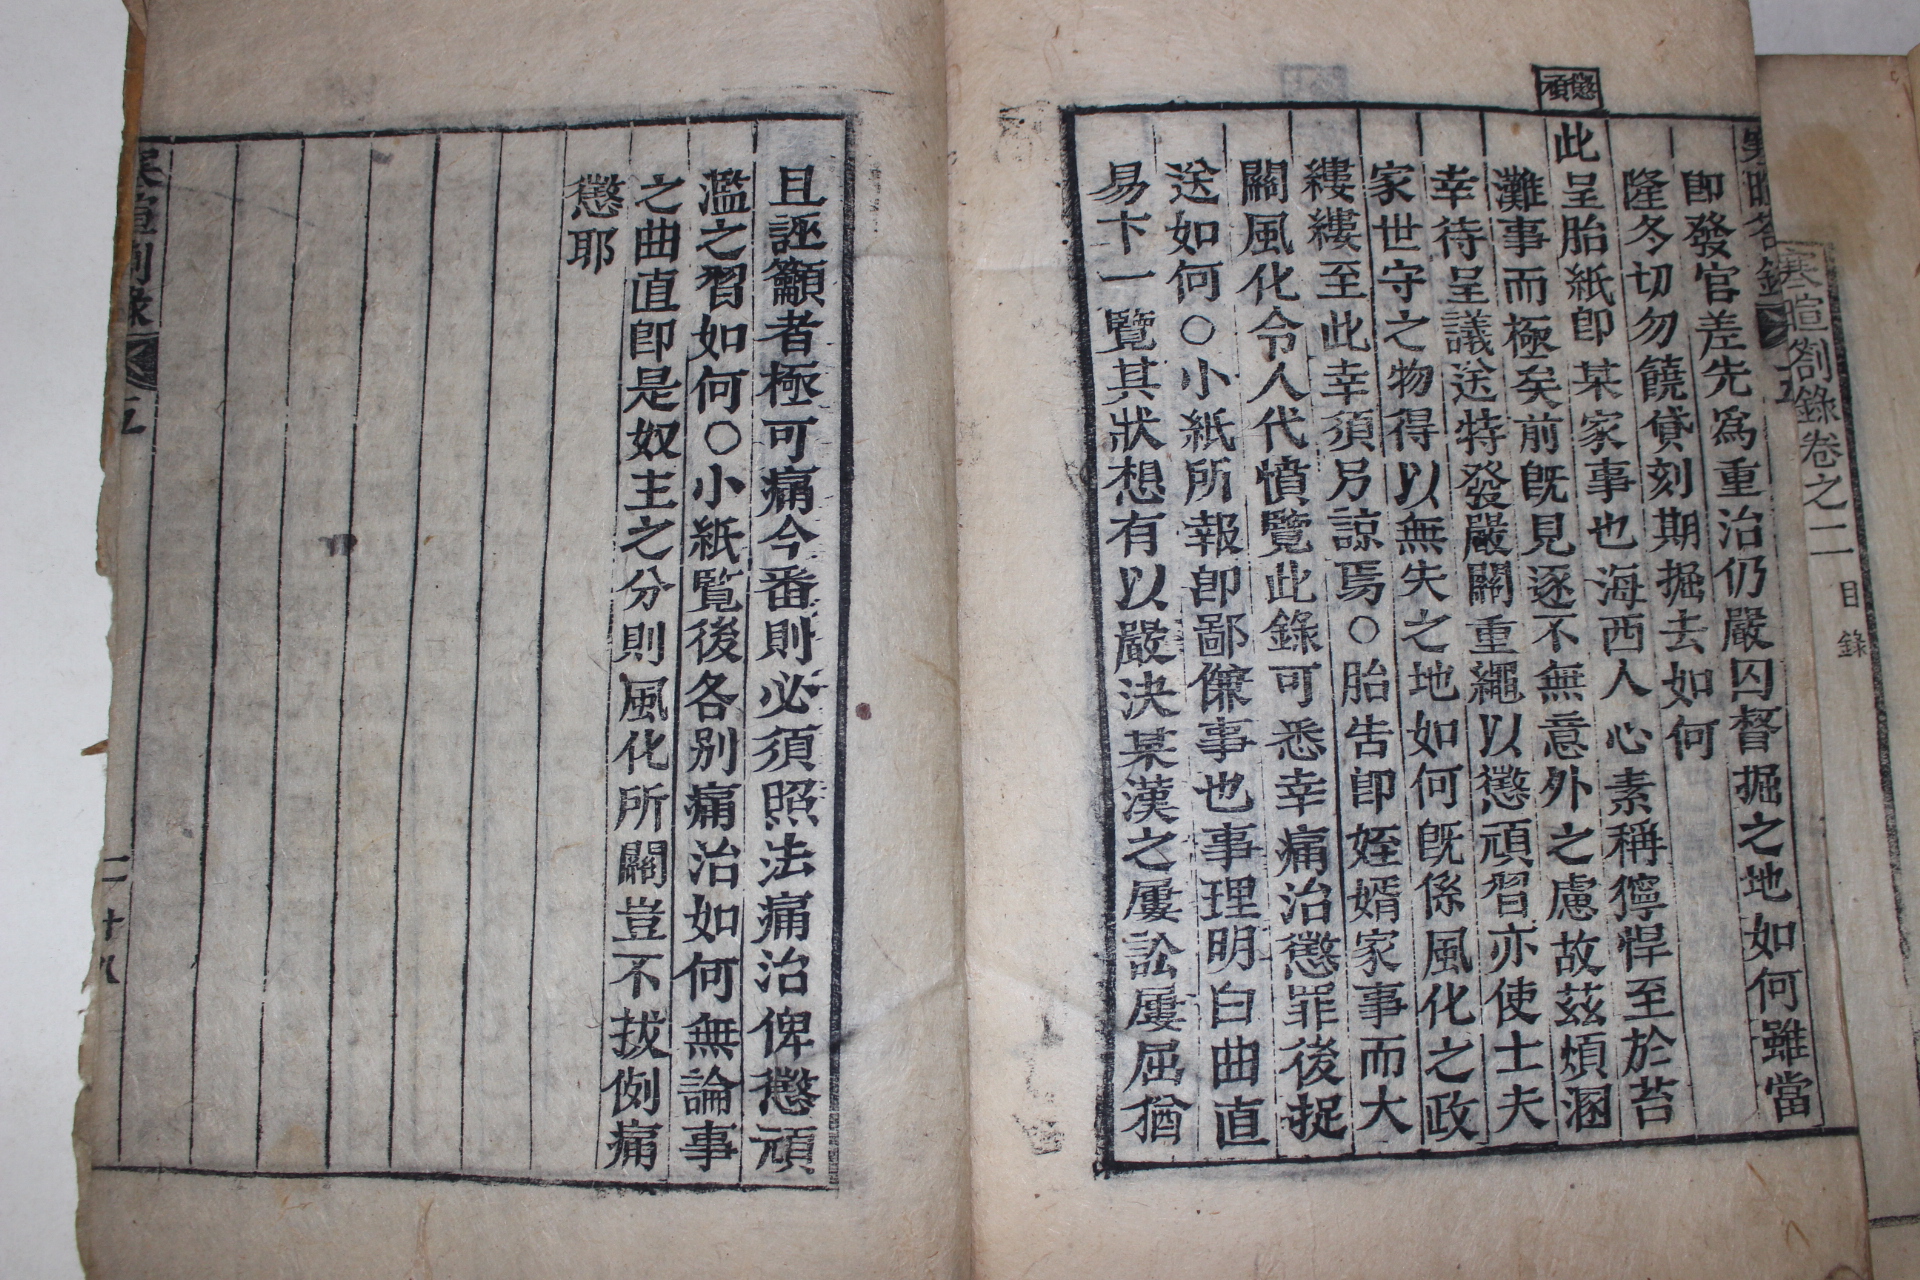 寒暄劄錄卷之二 目錄
即發官差先爲重治仍嚴囚督掘之地如何雖當
隆冬切勿饒貸刻期掘去如何
懲頑
此呈胎紙卽某家事也海西人心素稱獰悍至於苔
灘事而極矣前旣見逐不無意外之慮故茲煩溷
幸待呈議送特發嚴關重繩以懲頑習亦使士夫
家世守之物得以無失之地如何旣係風化之政
縷縷至此幸須另諒焉○胎告卽姪婿家事而大
關風化令人代憤覽此錄可悉幸痛治懲罪後捉
送如何○小紙所報卽鄙傔事也事理明白曲直
易卞一覽其狀想有以嚴決某漢之屢訟屢屈猶
且誣籲者極可痛今番則必須照法痛治俾懲頑
濫之習如何○小紙覧後各別痛治如何無論事
之曲直卽是奴主之分則風化所關豈不拔例痛
懲耶
寒暄劄錄 五
二十八